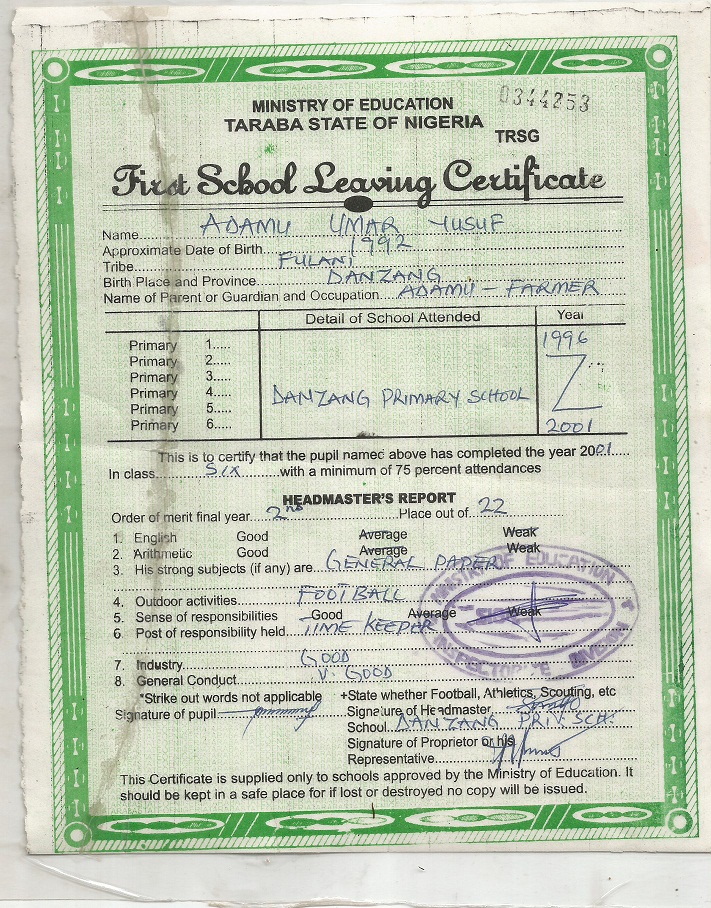 0344253
MINISTRY OF EDUCATION
TARABA STATE OF NIGERIA
TRSG
First School Leaving Certificate
Name ADAMU UMAR YUSUF
Approximate Date of Birth 1992
Tribe FULANI
Birth Place and Province DANZANG
Name of Parent or Guardian and Occupation ADAMU - FARMER
Detail of School Attended Year
Primary 1..... 1996
Primary 2.....
Primary 3.....
Primary 4..... DANZANG PRIMARY SCHOOL
Primary 5.....
Primary 6..... 2001
This is to certify that the pupil named above has completed the year 2001
In class Six with a minimum of 75 percent attendances
HEADMASTER'S REPORT
Order of merit final year 2nd Place out of 22
1. English Good Average Weak
2. Arithmetic Good Average Weak
3. His strong subjects (if any) are GENERAL PAPER
4. Outdoor activities FOOTBALL
5. Sense of responsibilities Good Average Weak
6. Post of responsibility held TIME KEEPER
MINISTRY OF EDUCATION
SIGN
INSPECTORATE DIVISION
7. Industry GOOD
8. General Conduct V. GOOD
*Strike out words not applicable +State whether Football, Athletics, Scouting, etc
Signature of pupil Signature of Headmaster
School DANZANG PRI. SCH.
Signature of Proprietor or his
Representative
This Certificate is supplied only to schools approved by the Ministry of Education. It
should be kept in a safe place for if lost or destroyed no copy will be issued.